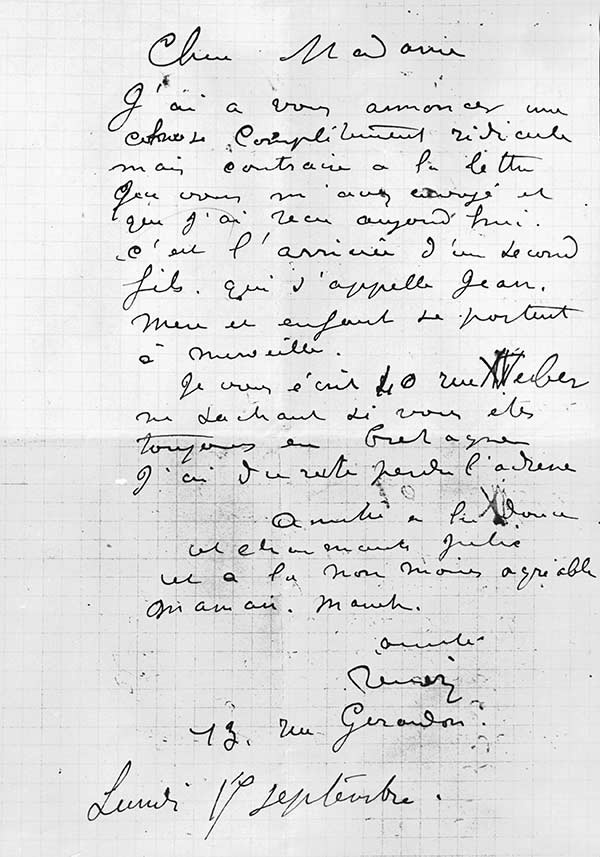 Chere Madame
J'ai a vous annoncer une
chose complètement ridicule
mais contraire a la lettre
que vous m'avez envoyé et
que j'ai recu aujourd'hui.
c'est l'arrivée d'un second
fils. qui s'appelle Jean.
Mere et enfant se portent
à merveille.
Je vous écrit 40 rue
ne sachant si vous etes
toujours en Bretagne
J'ai du reste perdu l'adresse
Amitié a la douce
et charmante Julie
et a la non moins agréable
maman.
amitié
Renoir
13. rue Girardon.
Lundi 17 septembre.